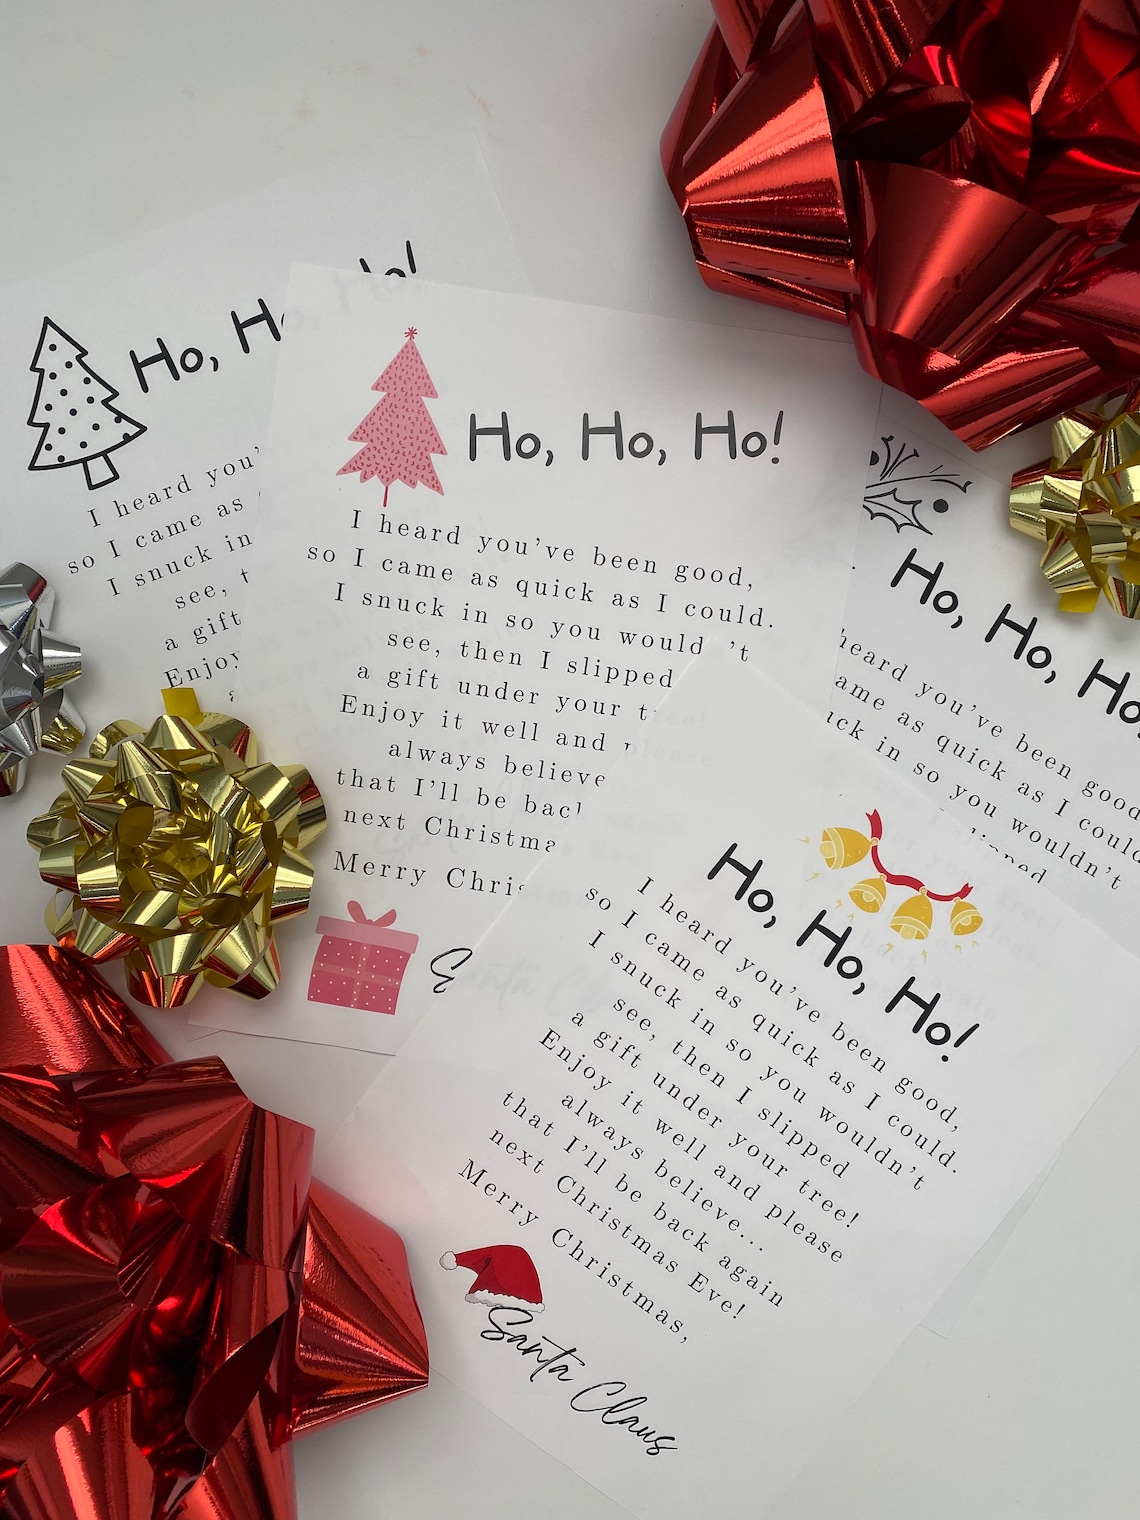 Ho, Ho!
I heard you'
so I came as
I snuck in
see, t
a gift
Enjoy
Ho, Ho, Ho!
I heard you've been good,
so I came as quick as I could.
I snuck in so you would 't
see, then I slipped
a gift under your t
Enjoy it well and
always believe
that I'll be bac
next Christma
Merry Chris
S
Ho, Ho, Ho
heard you've been good
ame as quick as I could
uck in so you wouldn't
slipped
Ho, Ho, Ho!
I heard you've been good,
so I came as quick as I could.
I snuck in so you wouldn't
see, then I slipped
a gift under your tree!
Enjoy it well and please
always believe...
that I'll be back again
next Christmas Eve!
Merry Christmas,
Santa Claus